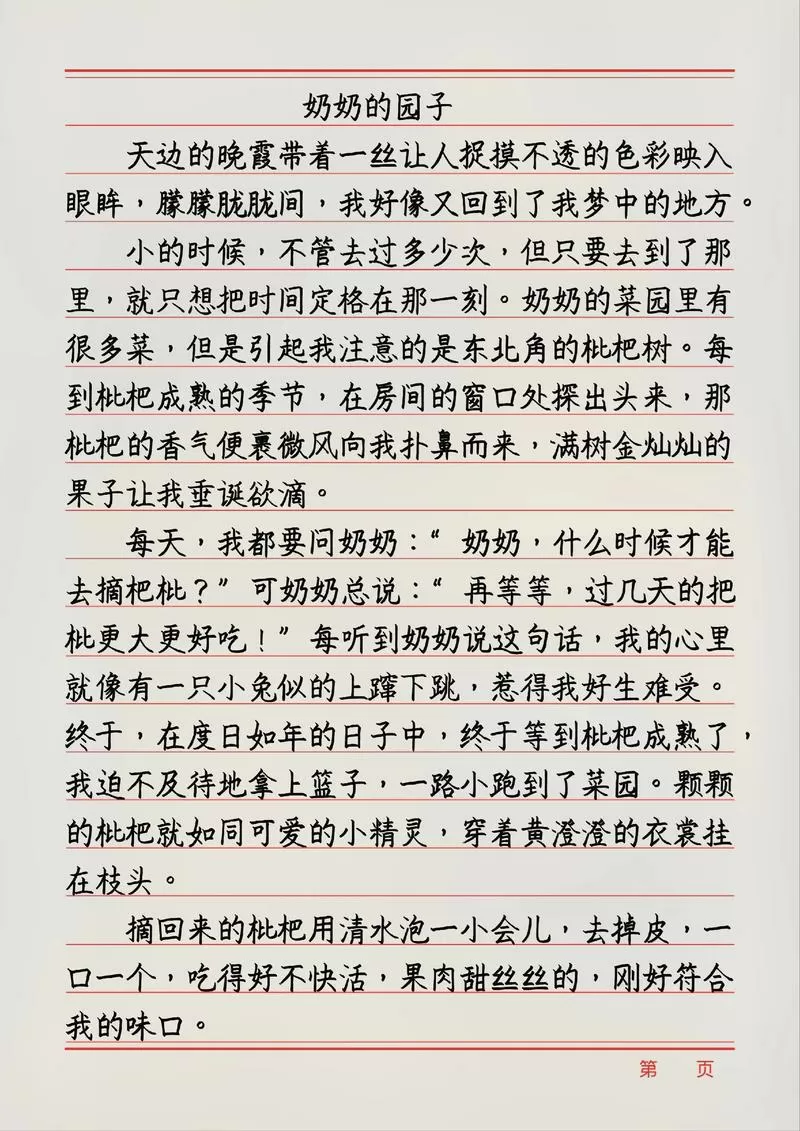 奶奶的园子
天边的晚霞带着一丝让人捉摸不透的色彩映入
眼眸，朦朦胧胧间，我好像又回到了我梦中的地方。
小的时候，不管去过多少次，但只要去到了那
里，就只想把时间定格在那一刻。奶奶的菜园里有
很多菜，但是引起我注意的是东北角的枇杷树。每
到枇杷成熟的季节，在房间的窗口处探出头来，那
枇杷的香气便裹微风向我扑鼻而来，满树金灿灿的
果子让我垂诞欲滴。
每天，我都要问奶奶：“奶奶，什么时候才能
去摘杷枇？”可奶奶总说：“再等等，过几天的把
枇更大更好吃！”每听到奶奶说这句话，我的心里
就像有一只小兔似的上蹿下跳，惹得我好生难受。
终于，在度日如年的日子中，终于等到枇杷成熟了，
我迫不及待地拿上篮子，一路小跑到了菜园。颗颗
的枇杷就如同可爱的小精灵，穿着黄澄澄的衣裳挂
在枝头。
摘回来的枇杷用清水泡一小会儿，去掉皮，一
口一个，吃得好不快活，果肉甜丝丝的，刚好符合
我的味口。
第 页